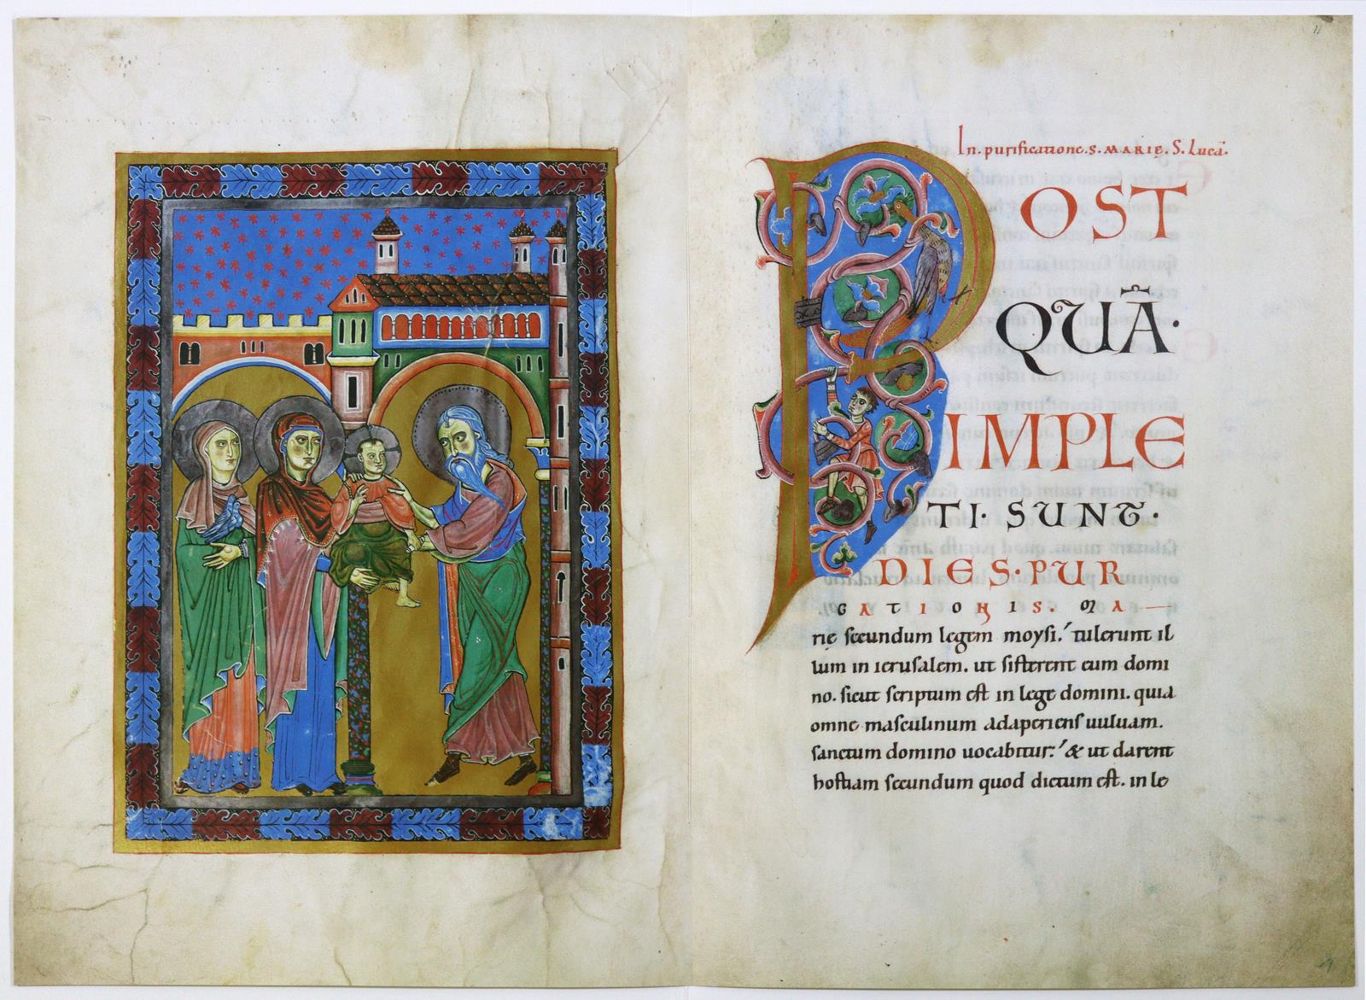 In. purificatione. S. MARIĘ. S. Lucā.
POST
QUĀ·
IMPLE
TI· SUNT·
DIES·PUR
GATIONIS. MA
rię secundum legem moysi. tulerunt il
lum in ierusalem. ut sisterent eum domi
no. sicut scriptum est in lege domini. quia
omne masculinum adaperiens uuluam.
sanctum domino uocabitur. & ut darent
hostiam secundum quod dictum est. in le